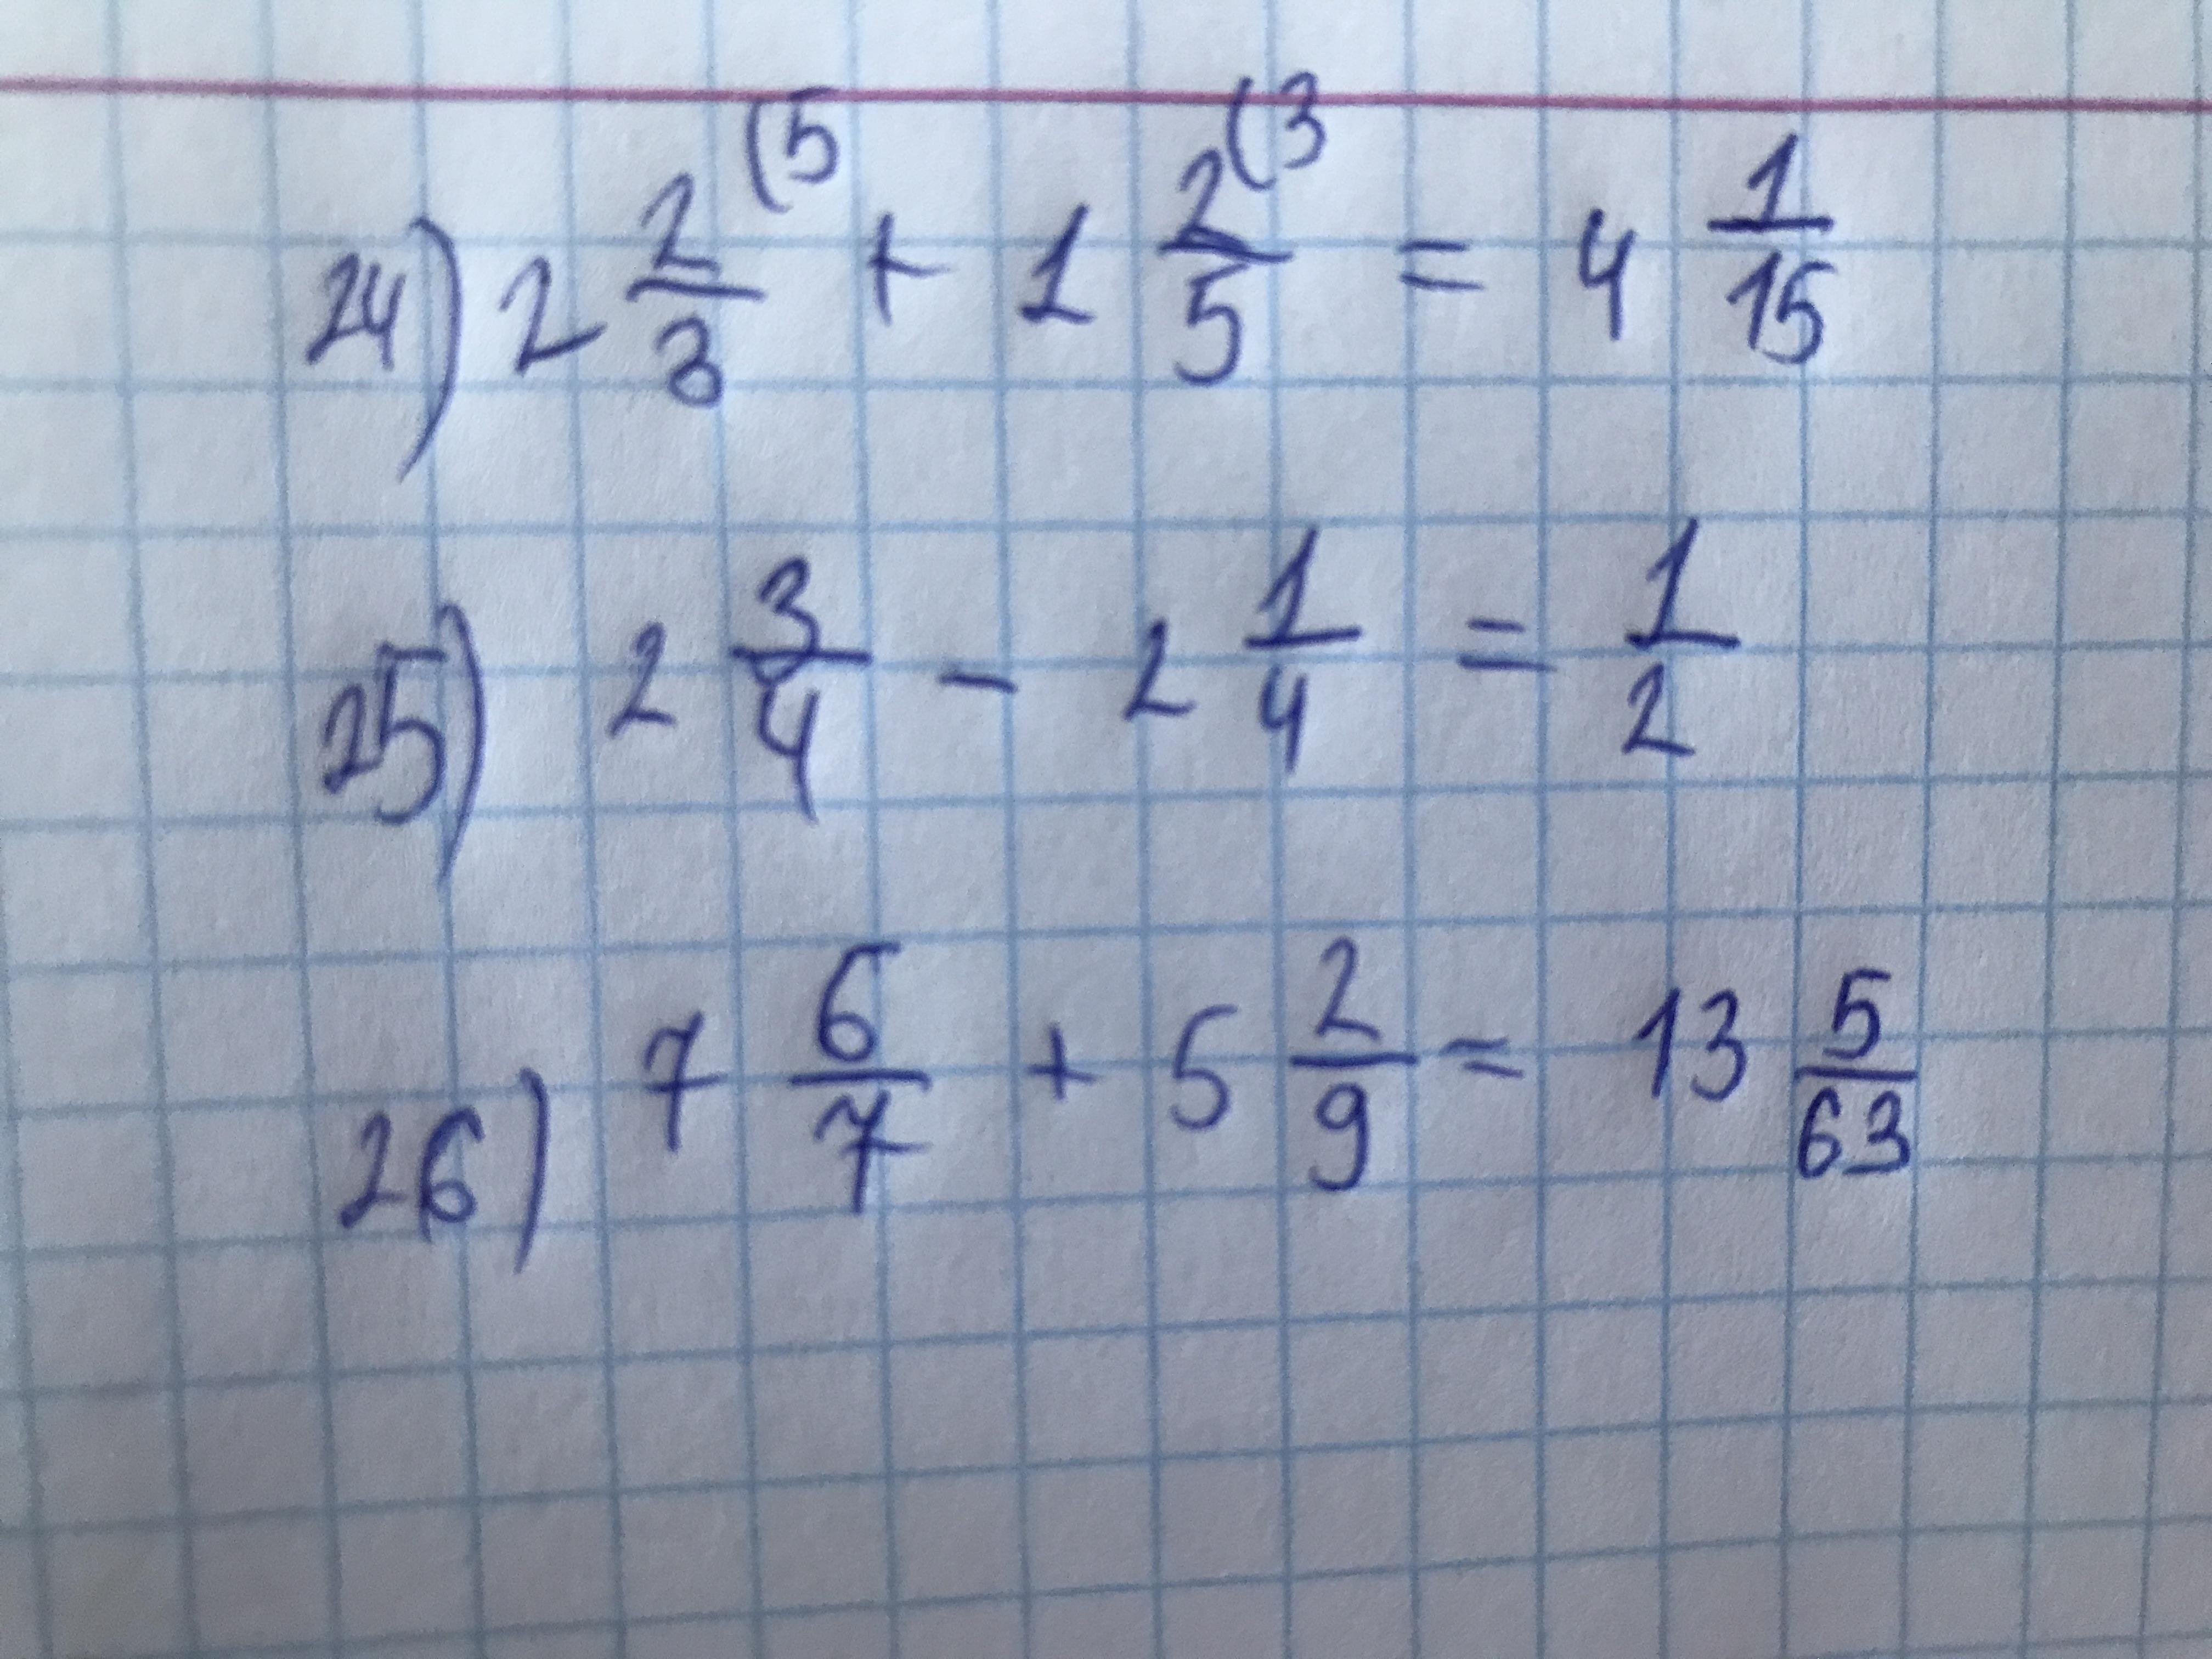 24) 2 2/3 (5 + 1 2/5 (3 = 4 1/15
25) 2 3/4 - 2 1/4 = 1/2
26) 7 6/7 + 5 2/9 = 13 5/63